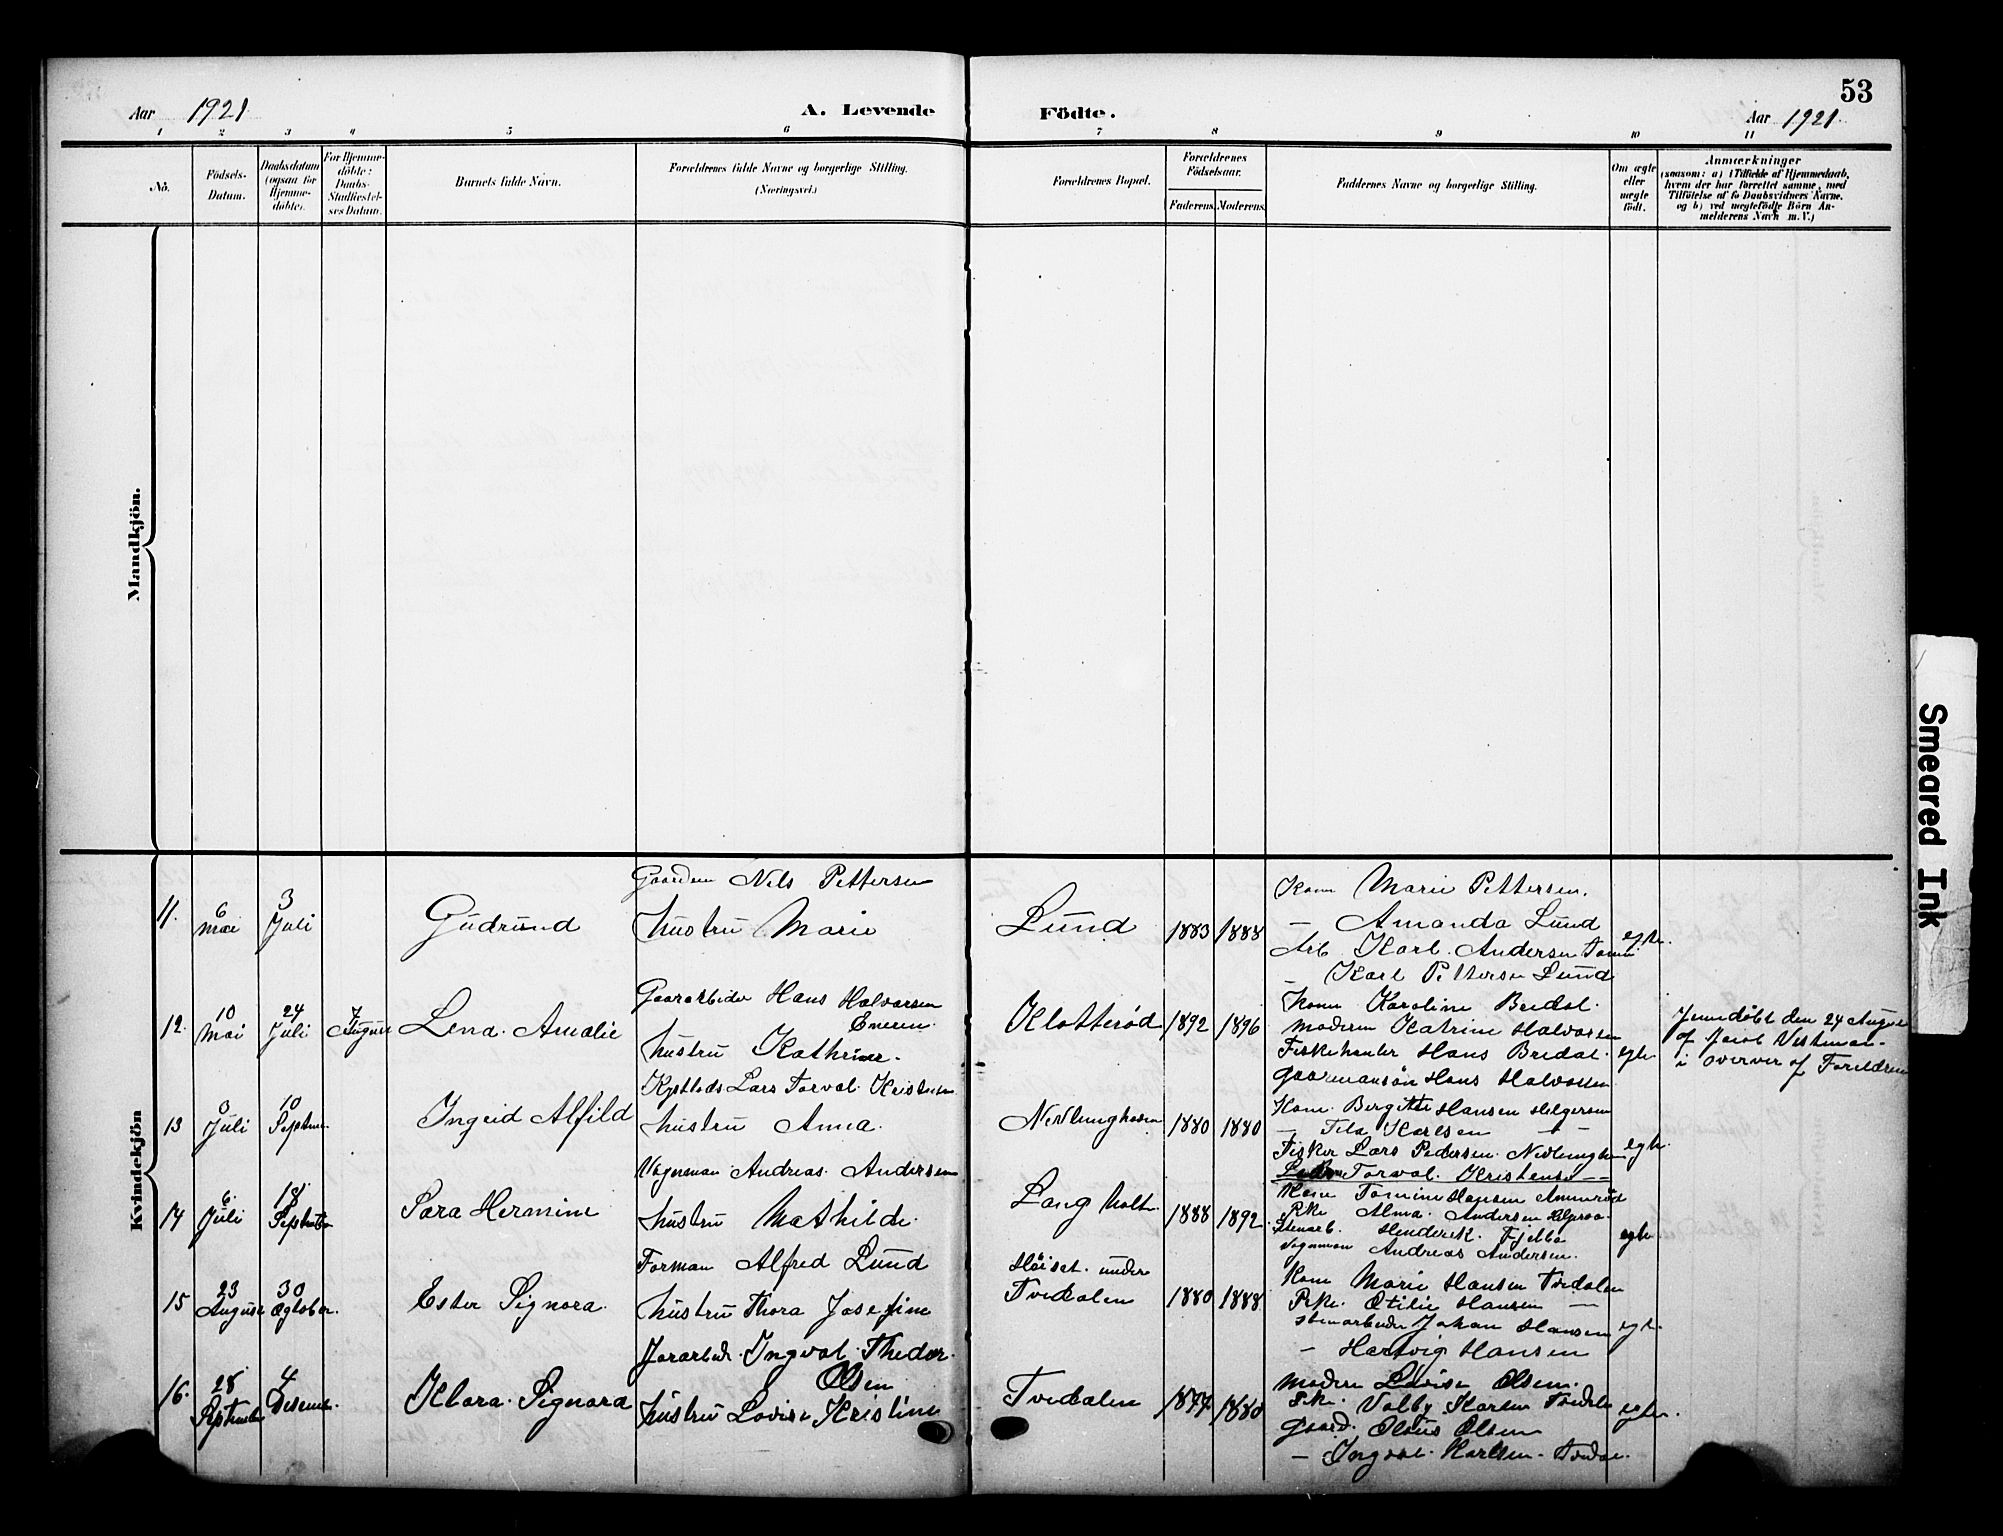 53
Aar 1921
A. Levende
Födte.
Aar 1921.
1 2 3 4 5 6 7 8 9 10 11
No.
Födsels-
Datum.
Daabsdatum
(ogsaa for
Hjemme-
döbte).
For Hjemme-
döbte:
Daabs-
Stadfæstel-
ses Datum.
Barnets fulde Navn.
Forældrenes fulde Navne og borgerlige Stilling.
(Næringsvei.)
Forældrenes Bopæl.
Forældrenes
Födselsaar.
Faderens. Moderens.
Faddernes Navne og borgerlige Stilling.
Om ægte
eller
uægte
födt.
Anmærkninger
(saasom: a) i Tilfælde af Hjemmedaab,
hvem der har forrettet samme, med
Tilföielse af to Daabsvidners Navne.
og b) ved uægtefödte Börn An-
melderens Navn m. V.)
Mandkjön.
Kvindekjön
11.
6
Mai
3
Juli
Gudrund
Nils Pettersen
hustru Marie
Lund
1883 1888
Kone Marie Pettersen.
— Amanda Lund
Arb Karl Andersen
— Karl Pettersen Lund
egte.
12.
10
Mai
24
Juli
7
August
Lena Amalie
Gaararbeider Hans Halvorsen
hustru Kathrine.
Klotterød
1892 1896
Kone Karoline Bredal.
Moderen Katrine Halvorsen
Fiskehanler Hans Bredal.
Hans Halvorsen
egte
den 24 August
af Jacob
i overver af Foreldrene
13
Juli
10
Septem
Ingrid Alfild
Lars Torval Kristensen
hustru Anna.
Nevlunghavn
1880 1880
Kone. Bergitte Hansen Helgeroa
— Karlsen — —
Fisker Lars Pedersen. Nevlunghavn
Torval. Kristensen — —
egte.
14
6.
Juli
18
September
Sara Hermine
Andreas. Andersen
hustru Mathilde.
Lang
1888 1892
Kone Tomine Hansen
Pike Alma. Andersen Helgeroa.
Stenarb. Henderik. Fjelbo
Andreas Andersen.
egte.
15
23
August
30
Ogtober.
Ester Signora.
Forman Alfred Lund
hustru Thora Josefine
under
Tvedalen
1880 1888
Kone Marie Hansen Tvedalen
Pike. Otilie Hansen —
Stenarbeider Johan Hansen
— Hartvig Hansen
egte.
16.
28
September
4
Desember.
Klara. Signora
Jorarbeider. Ingval. Theodor.
Olsen
hustru Lovise Kristine
Tvedalen
1877 1880
Moderen Lovise Olsen.
Pike. Valby Karlsen Tvedalen
Gaard. Olaus Olsen
— Ingval. Karlsen.
egte.
Smeared Ink